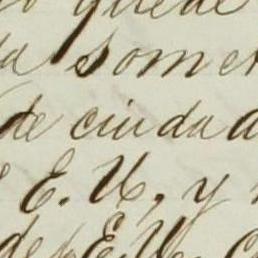 quede
somet
de ciudad
E. U., y
de E. U.